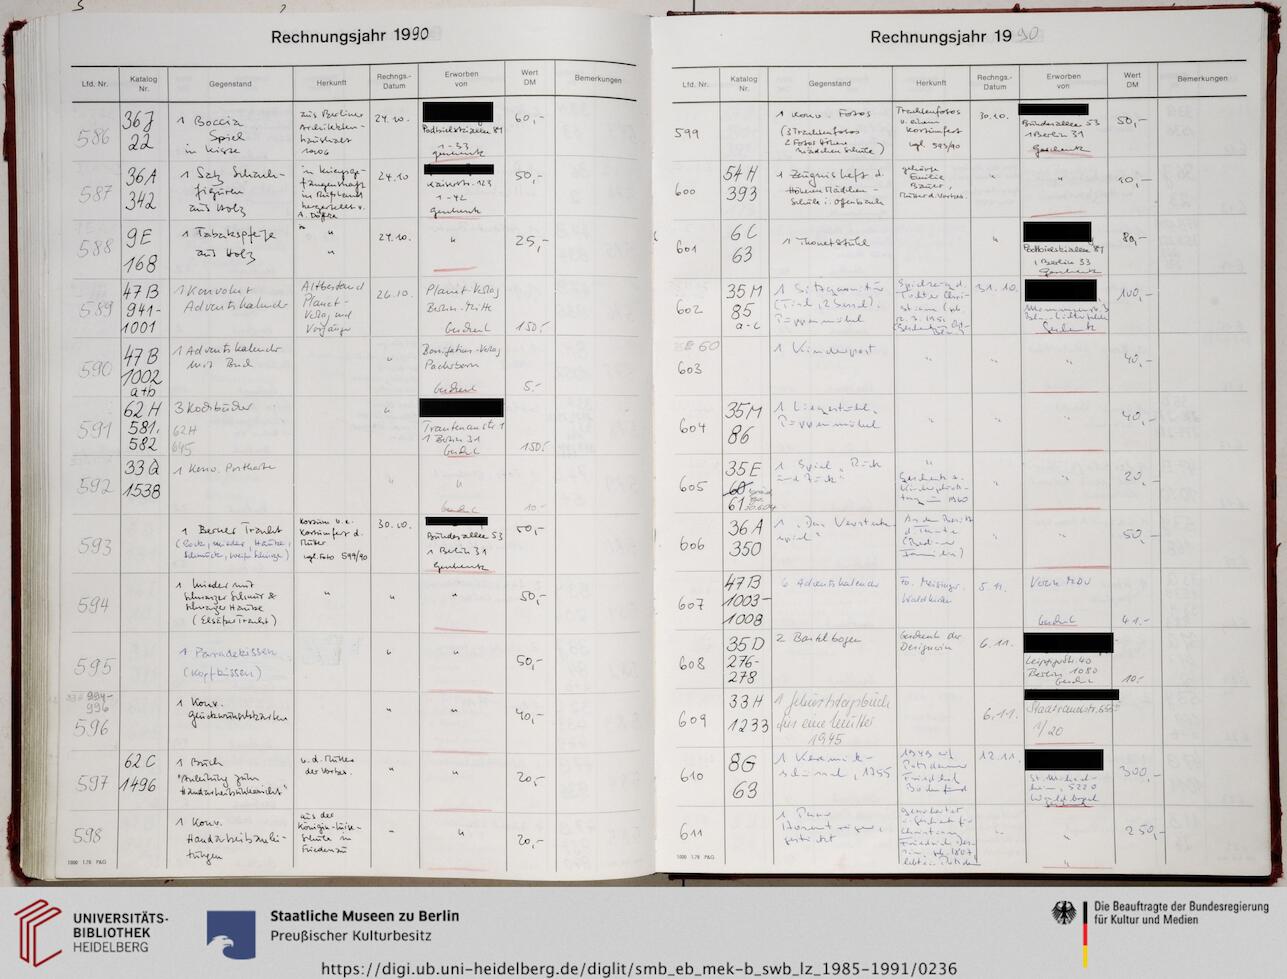 Rechnungsjahr 1990
Lfd. Nr. Katalog Nr. Gegenstand Herkunft Rechngs.-Datum Erworben von Wert DM Bemerkungen
586
36J
22
1 Boccia
Spiel
in Kiste
aus Berliner
Architekten-
haushalt
1906
24.10.
Podbielskiallee 81
1-33
Geschenk
60,-
587
36A
342
1 Satz Schach-
figuren
aus Holz
in Kriegsge-
fangenschaft
in Rußland
hergestellt v.
24.10
Kaiserstr. 123
1-42
Geschenk
50,-
588
9E
168
1 Tabakspfeife
aus Holz
"
"
24.10.
"
25,-
589
47B
941-
1001
1 Konvolut
Adventskalender
Altbestand
Planet-
Verlag und
Vorgänger
26.10.
Planet-Verlag
Berlin-Mitte
Geschenk
150,-
590
47B
1002
a+b
1 Adventskalender
mit Buch
"
Bonifatius-Verlag
Paderborn
Geschenk
5,-
591
62H
581,
582
3 Kochbücher
62H
645
"
Trautenaustr. 1
1 Berlin 31
Geschenk
150,-
592
33Q
1538
1 Konv. Postkarten
"
"
Geschenk
10,-
593
1 Berner Tracht
(Rock, Mieder, Haube,
Schmuck,
Kostüm v. e.
Kostümfest d.
Mutter
vgl. Foto 599/90
30.10.
Bundesallee 53
1 Berlin 31
Geschenk
50,-
594
1 Mieder mit
schwarzer Schnur &
schwarzer Haube
(Elsäßer Tracht)
"
"
"
50,-
595
1 Paradekissen
(Kopfkissen)
"
"
50,-
994-
996
596
1 Konv.
Glückwunschkarten
"
"
40,-
597
62C
1496
1 Buch
"Anleitung zum
Handarbeitsunterricht"
v. d. Mutter
der Vorbes.
"
"
20,-
598
1 Konv.
Handarbeitsanlei-
tungen
aus der
Königin-Luise-
Schule in
Friedenau
"
"
20,-
1000 1.78 P&G
Rechnungsjahr 1990
Lfd. Nr. Katalog Nr. Gegenstand Herkunft Rechngs.-Datum Erworben von Wert DM Bemerkungen
599
1 Konv. Fotos
(3 Trachtenfotos
2 Fotos Höhere
Mädchen Schule)
Trachtenfotos
v. einem
Kostümfest
vgl. 593/90
30.10.
Bundesallee 53
1 Berlin 31
Geschenk
50,-
600
54H
393
1 Zeugnisheft d.
Höheren Mädchen-
Schule i. Offenbach
gehörte
Emilie
Bauer,
Mutter d. Vorbes.
"
"
10,-
601
6C
63
1 Thonetstuhl
"
Podbielskiallee 81
1 Berlin 33
Geschenk
80,-
602
35M
85
a-c
1 Sitzgarnitur
(Tisch, 2 Sessel),
Puppenmöbel
31.10.
Geschenk
100,-
60
603
1 Kinderpost
"
"
"
40,-
604
35M
86
1 Liegestuhl,
Puppenmöbel
"
"
"
40,-
605
35E
60
61
1 Spiel
"
"
"
20,-
606
36A
350
1
"
"
50,-
607
47B
1003-
1008
6 Adventskalender
Fa. Meisinger
Waldkirchen
5.11.
Verein MDV
Geschenk
41,-
608
35D
276-
278
2 Bastelbogen
Geschenk der
Designerin
6.11.
Leipzigerstr. 40
Berlin 1080
Geschenk
10,-
609
33H
1233
1 Geburtstagsbuch
für eine Mutter
1945
6.11.
Stadtrandstr. 555
1/20
610
8G
63
1 Keramik-
1955
1949 auf
Potsdamer
Friedhof
Bodenfund
12.11.
5220
Waldbröl
300,-
611
1 Paar
Hosenträger,
gestickt
"
"
250,-
1000 1.78 P&G
UNIVERSITÄTS-
BIBLIOTHEK
HEIDELBERG
Staatliche Museen zu Berlin
Preußischer Kulturbesitz
Die Beauftragte der Bundesregierung
für Kultur und Medien
https://digi.ub.uni-heidelberg.de/diglit/smb_eb_mek-b_swb_lz_1985-1991/0236